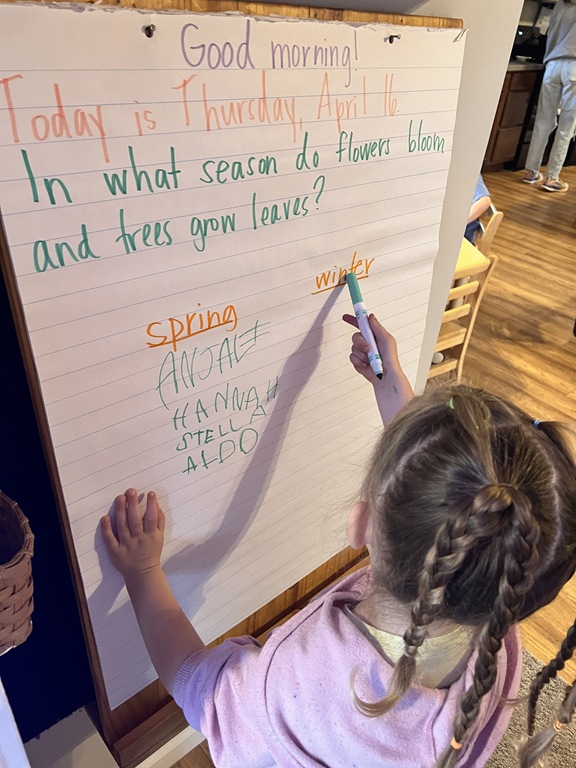 Good morning!
Today is Thursday, April 16.
In what season do flowers bloom
and trees grow leaves?
winter
spring
ANJALI
HANNAH
STELLA
ALDO